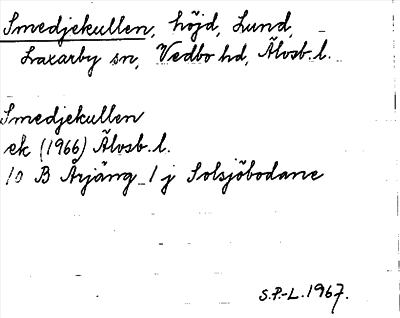 Smedjekullen, höjd, Lund,
Laxarby sn, Vedbo hd, Älvsb. l.
Smedjekullen
ek (1966) Älvsb. l.
10 B Årjäng 1 j Solsjöbodane
S.P.-L. 1967.